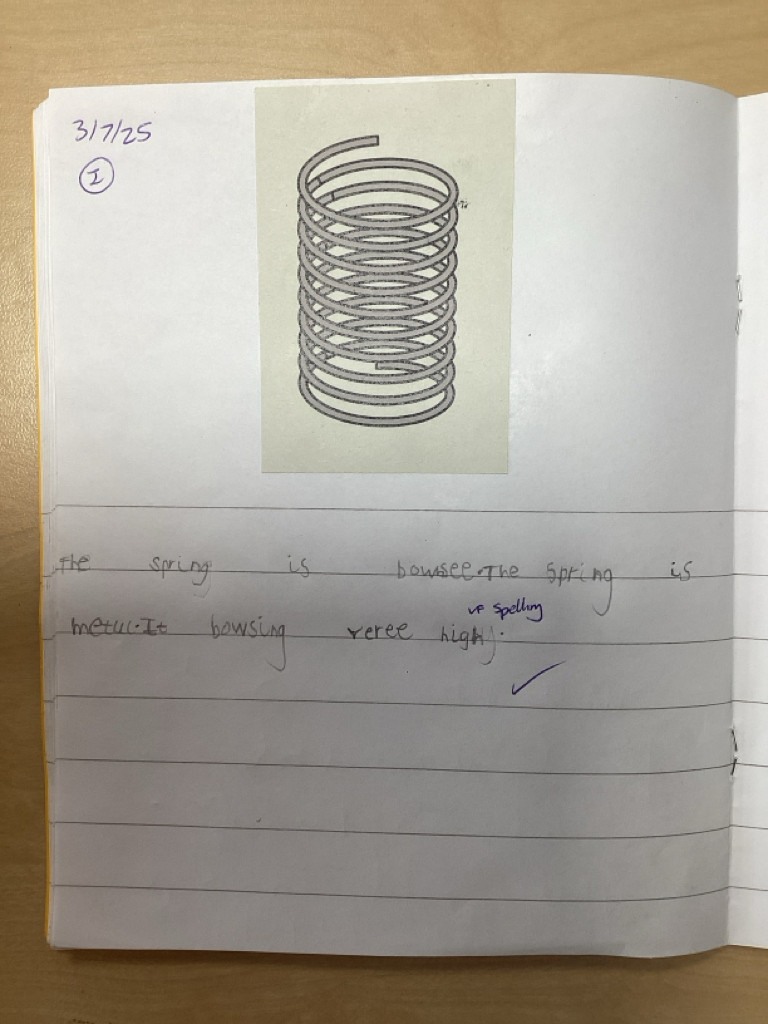 3/7/25
I
The spring is bowsee. The spring is
vf spelling
metul. It bowsing veree high.